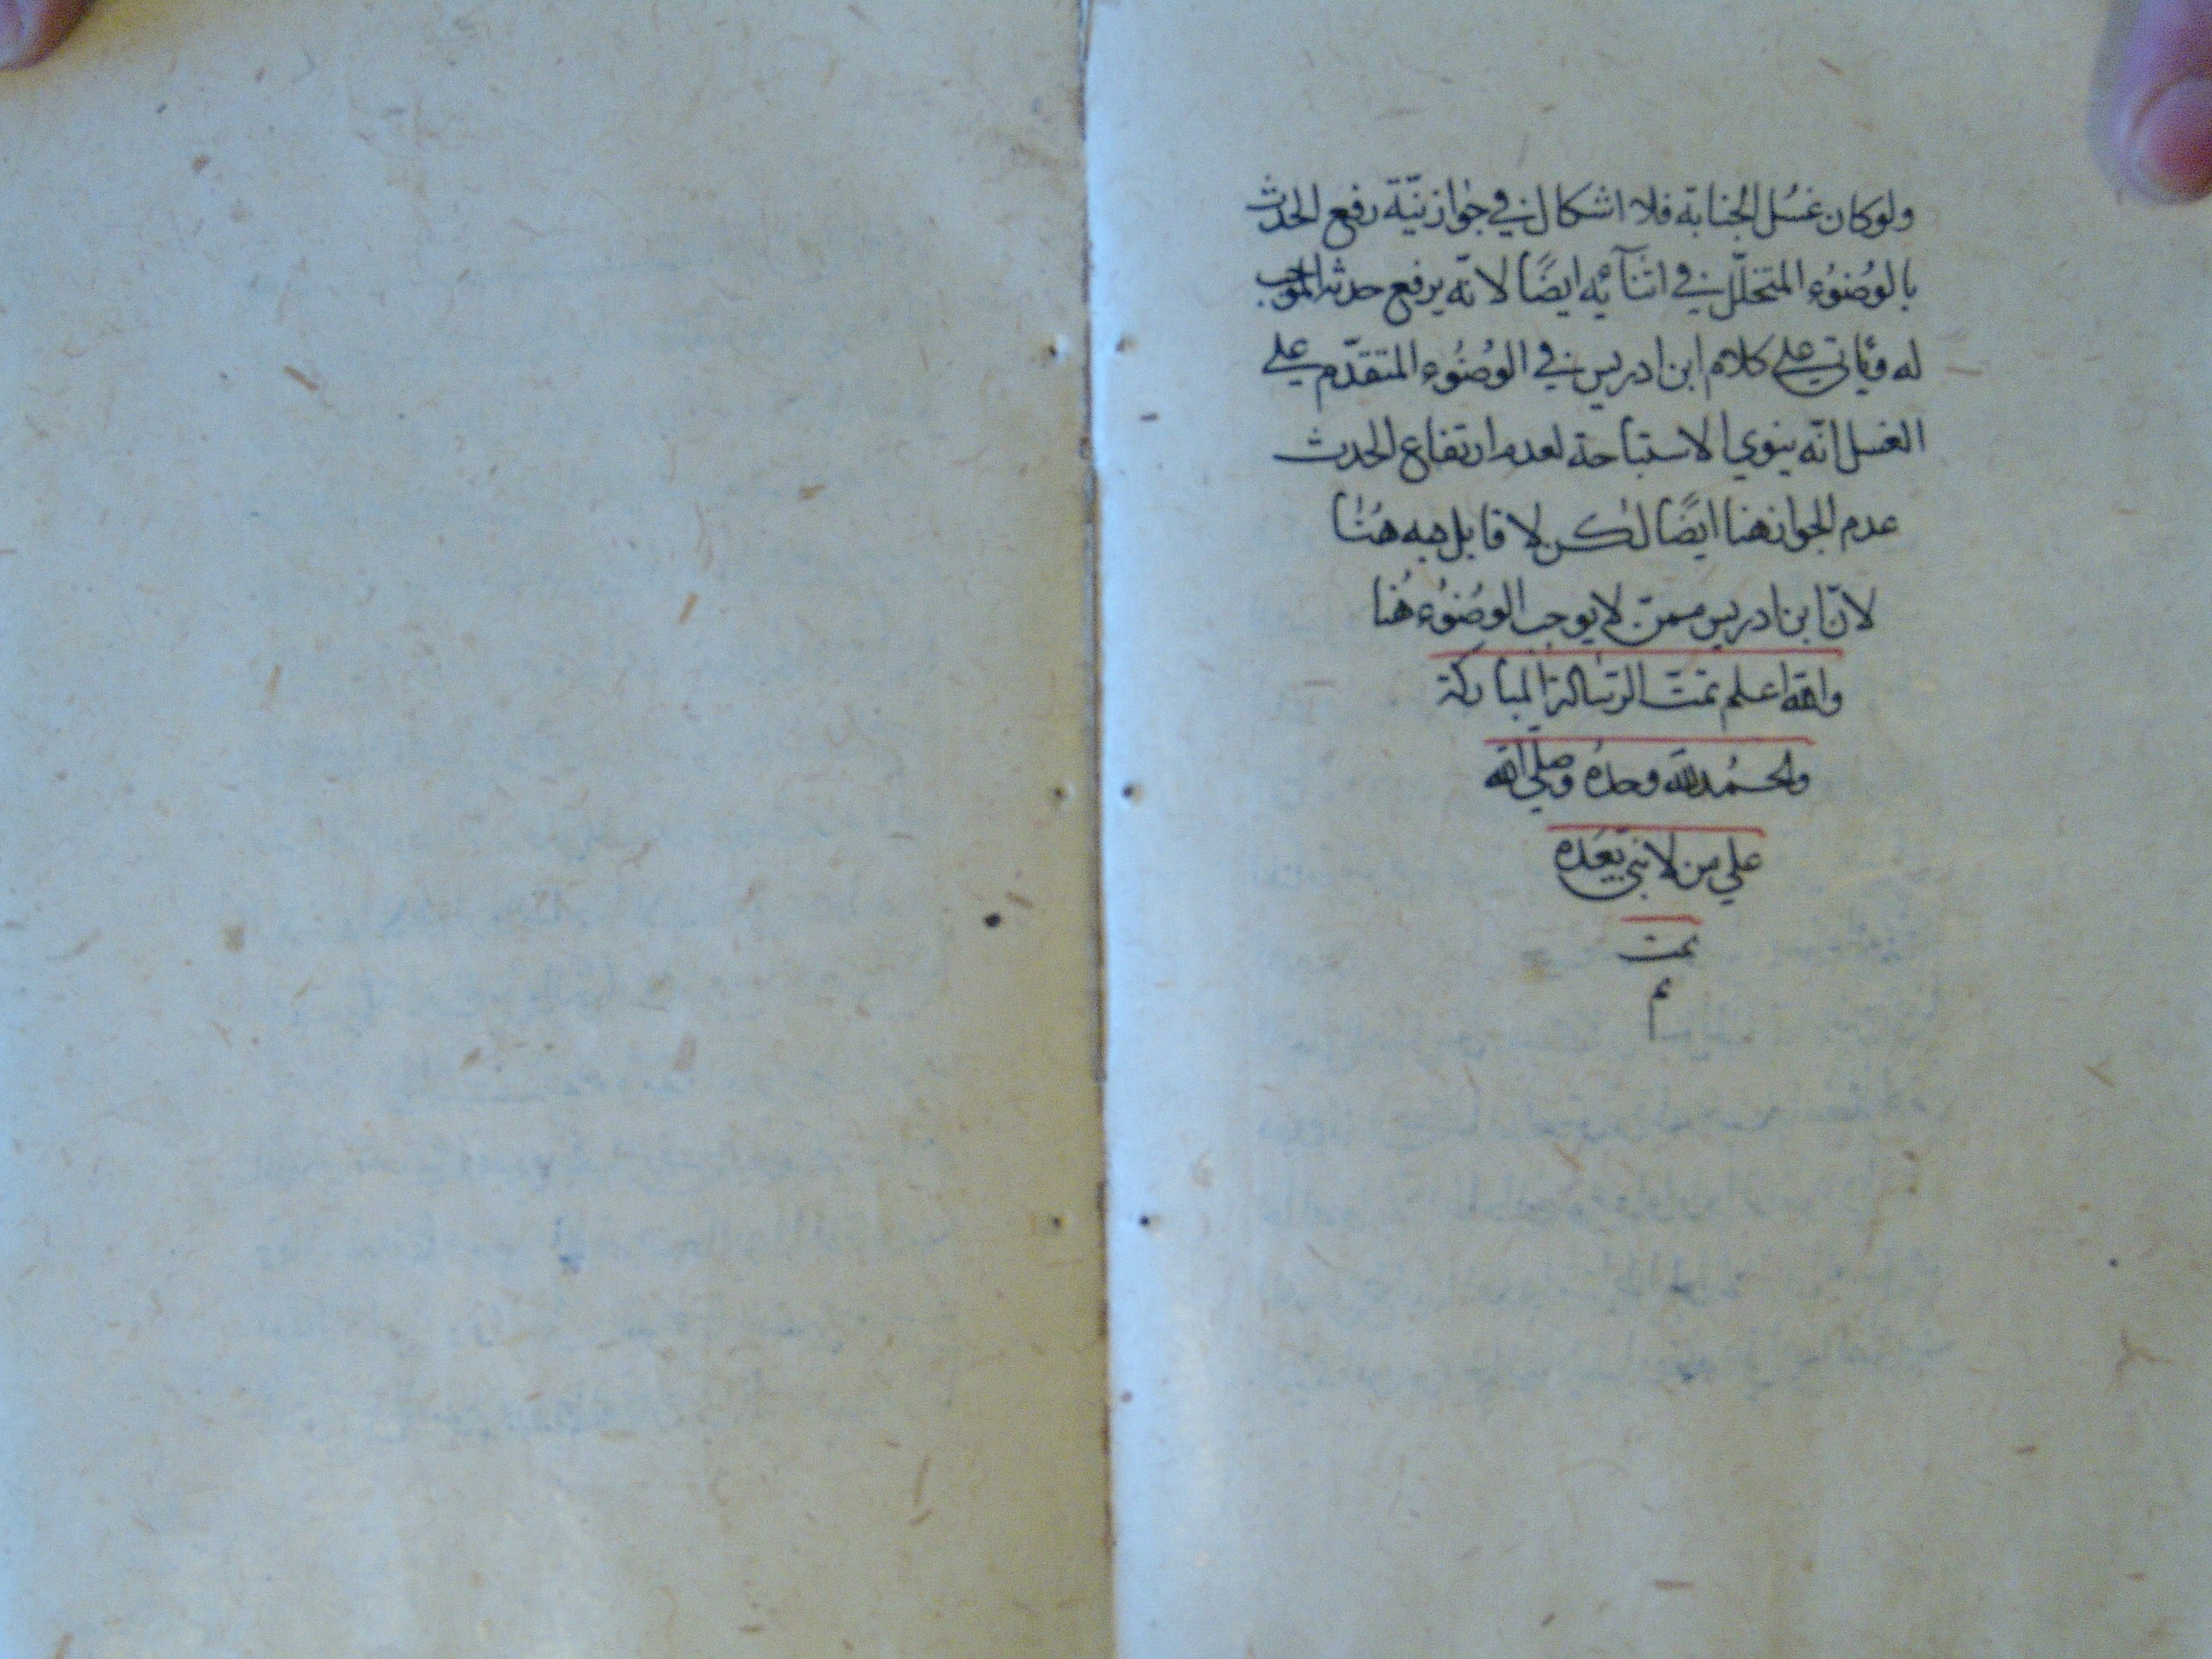 ولو كان غسُل الجُنابة فلا اشكال في جواز نيّة رفع الحدث
بالوُضوُء المتخلّل في اثنآئه ايضًا لانّه يرفع حدثه الموجب
له ويأتي على كلام ابن ادريس في الوُضوُء المتقدّم على
الغسل انّه ينوي الاستباحة لعدم ارتفاع الحدث
عدم الجواز هنا ايضًا لكن لا قابل به هُنا
لانّ ابن ادريس ممنّ لا يوجب الوضوُء هُنا
والله اعلم تمت الرسالة المباركة
والحمُد لله وحدهُ وصلي الله
علي من لا نبيّ بعَده
تمت
م